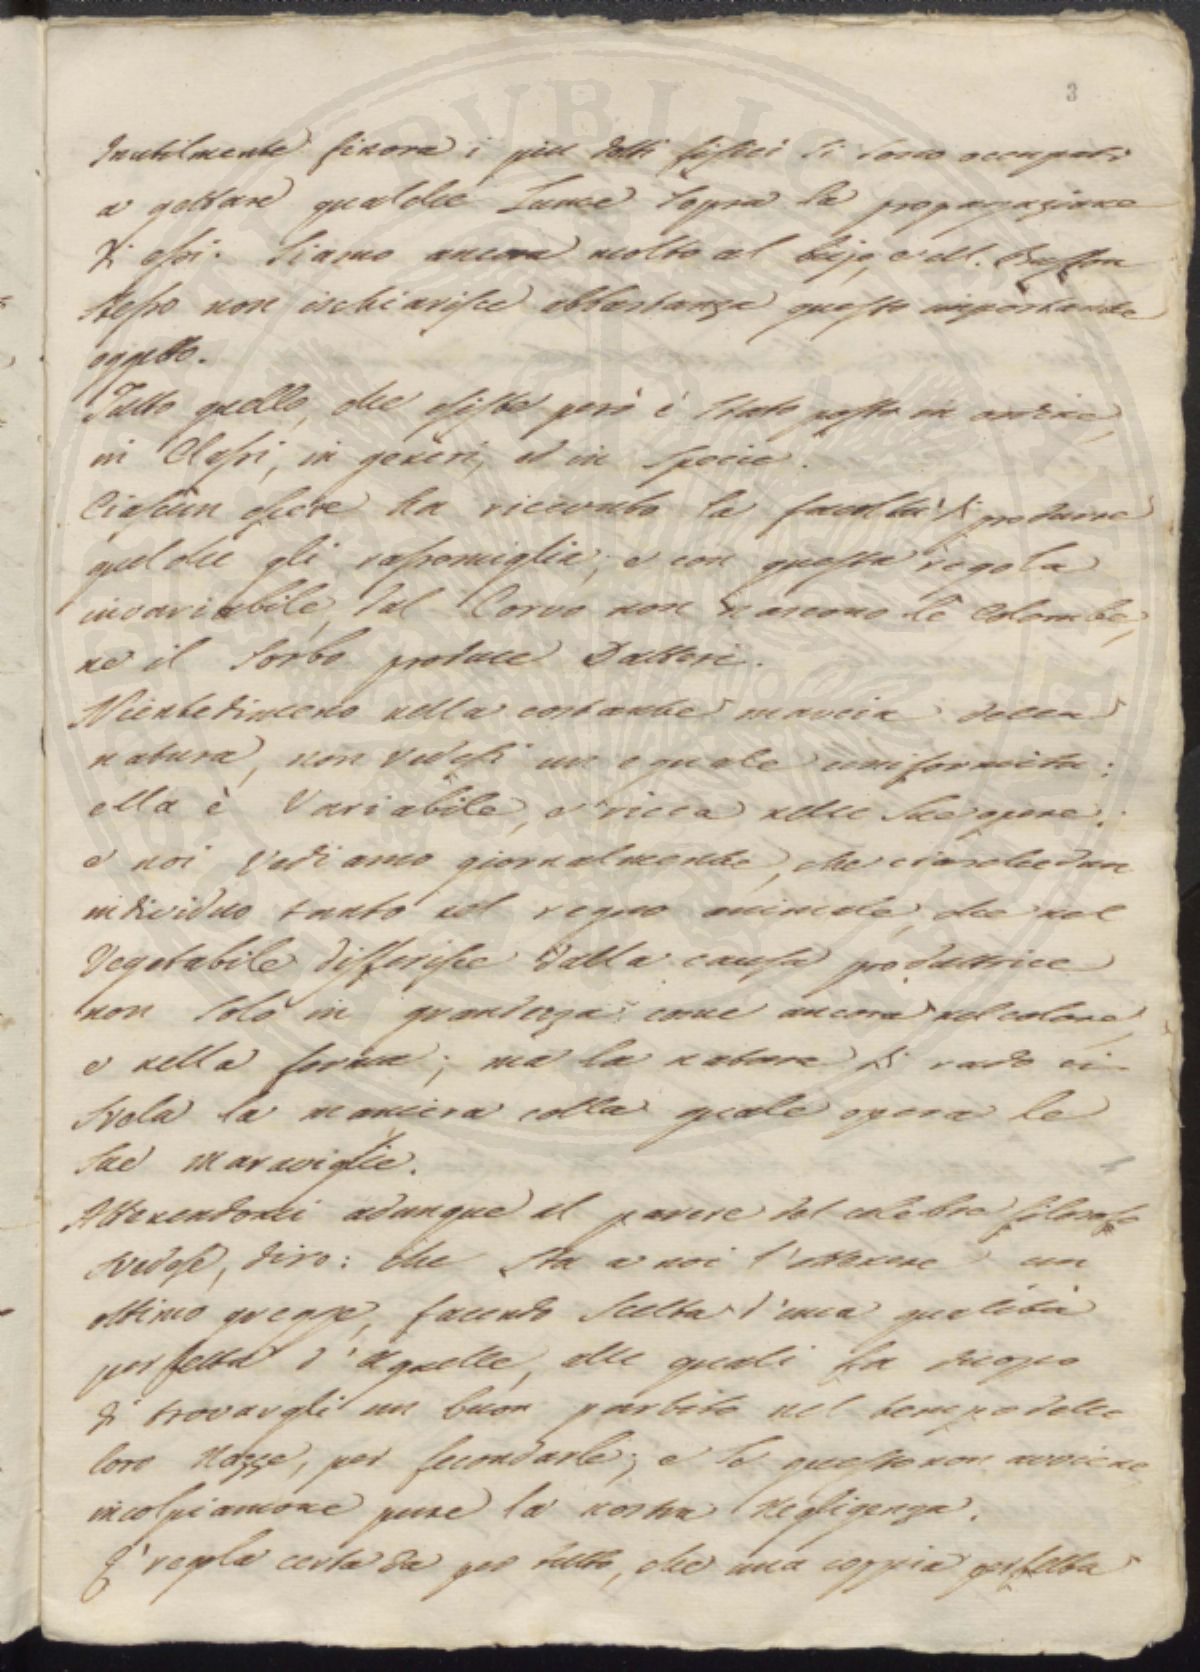 3
Inutilmente finora i più dotti fisici si sono occupati
a gettare qualche Lume sopra la propagazione
di essi. Siamo ancora molto al bujo, e M. Buffon
stesso non ischiarisce abbastanza questo importante
oggetto.
Tutto quello, che esiste però è stato posto in ordine,
in Classi, in generi, ed in specie.
Ciascun essere ha ricevuto la facoltà di produrre
quel che gli rassomiglia; e con questa regola
invariabile, dal Corvo non nascono le Colombe,
ne il Sorbo produce Datteri.
Nientedimeno nella costante marcia della
natura, non vedesi un eguale uniformita:
ella è Variabile, e ricca nelle sue opere;
e noi vediamo giornalmente, che ciaschedun
individuo tanto nel regno animale, che nel
Vegetabile differisce dalla causa produttrice
non solo in grandezza come ancora nel colore,
e nella forma; ma la natura di rado ci
svela la maniera colla quale opera le
sue maraviglie.
Attenendoci adunque al parere del celebre filosofo
svedese, diro: che sta a noi l'ottenere un
ottimo gregge, facendo scelta d'una qualità
perfetta d'Agnelle, alle quali fa duopo
di trovargli un buon partito nel tempo delle
loro Nozze, per fecondarle; e se questo non avviene
incolpiamone pure la nostra Negligenza.
E' regola certa da per tutto, che una coppia perfetta